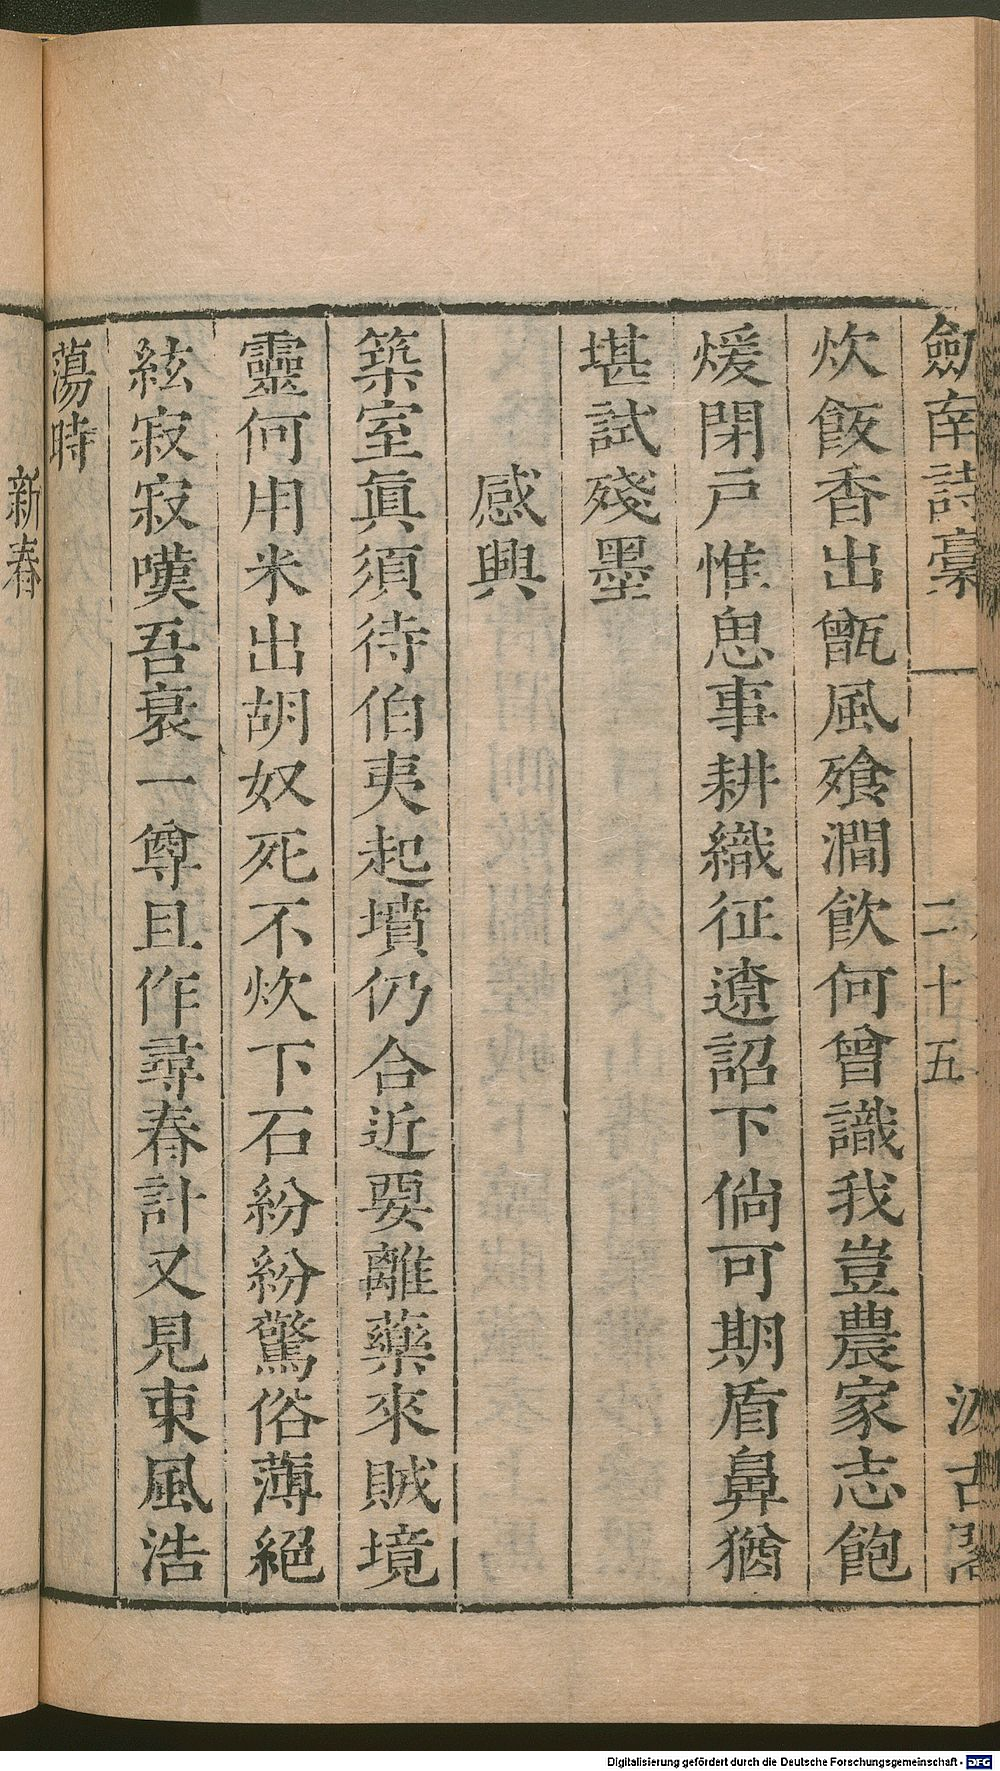 劒南詩稾 二十五 汲古閣
炊飯香出甑風飱澗飲何曾識我豈農家志飽
煖閉戸惟思事耕織征遼詔下倘可期盾鼻猶
堪試殘墨
感興
築室眞須待伯夷起墳仍合近要離藥來賊境
靈何用米出胡奴死不炊下石紛紛驚俗薄絕
絃寂寂嘆吾衰一尊且作尋春計又見東風浩
蕩時
新春
Digitalisierung gefördert durch die Deutsche Forschungsgemeinschaft - DFG